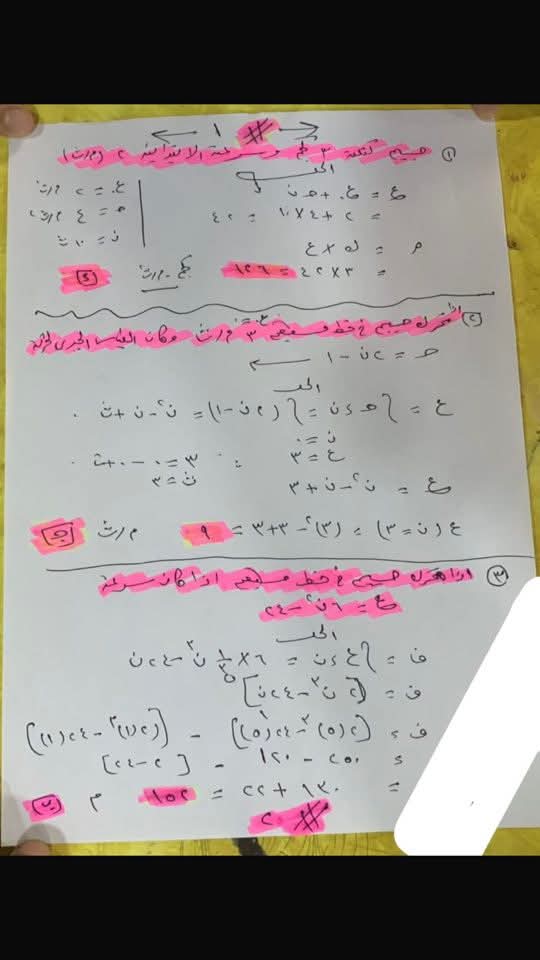 ← ١ # →
① جسيم كتلته ٣ كجم وسرعته الابتدائية ٢ م/ث
الحل
ع = ع. + حـ ن
ع. = ٢ م/ث
= ٢ + ٤×١٠ = ٤٢
حـ = ٤ م/ث٢
ن = ١٠ ث
م = ك × ع
= ٣ × ٤٢ = ١٢٦ كجم.م/ث (د)
② يتحرك جسيم في خط مستقيم ع.= ٣ م/ث وكان القياس الجبري
حـ = ٢ن - ١ ←
الحل
ع = ∫ حـ ءن = ∫ (٢ن - ١) = ن٢ - ن + ث
ن = ٠
ع = ٣ ∴ ٣ = ٠ - ٠ + ث
ث = ٣
ع = ن٢ - ن + ٣
ع (ن = ٣) = (٣)٢ - ٣ + ٣ = ٩ م/ث (جـ)
③ اذا تحرك جسيم في خط مستقيم اذا كان سرعته
ع = ٦ن٢ - ٢٤
الحل
ف = ∫ ع ءن = ٦ × ١/٣ ن٣ - ٢٤ن
ف = [٢ن٣ - ٢٤ن]
ف = [٢(٥)٣ - ٢٤(٥)] - [٢(١)٣ - ٢٤(١)]
= ٢٥٠ - ١٢٠ - [٢ - ٢٤]
= ١٣٠ + ٢٢ = ١٥٢ م (ب)
# ٢